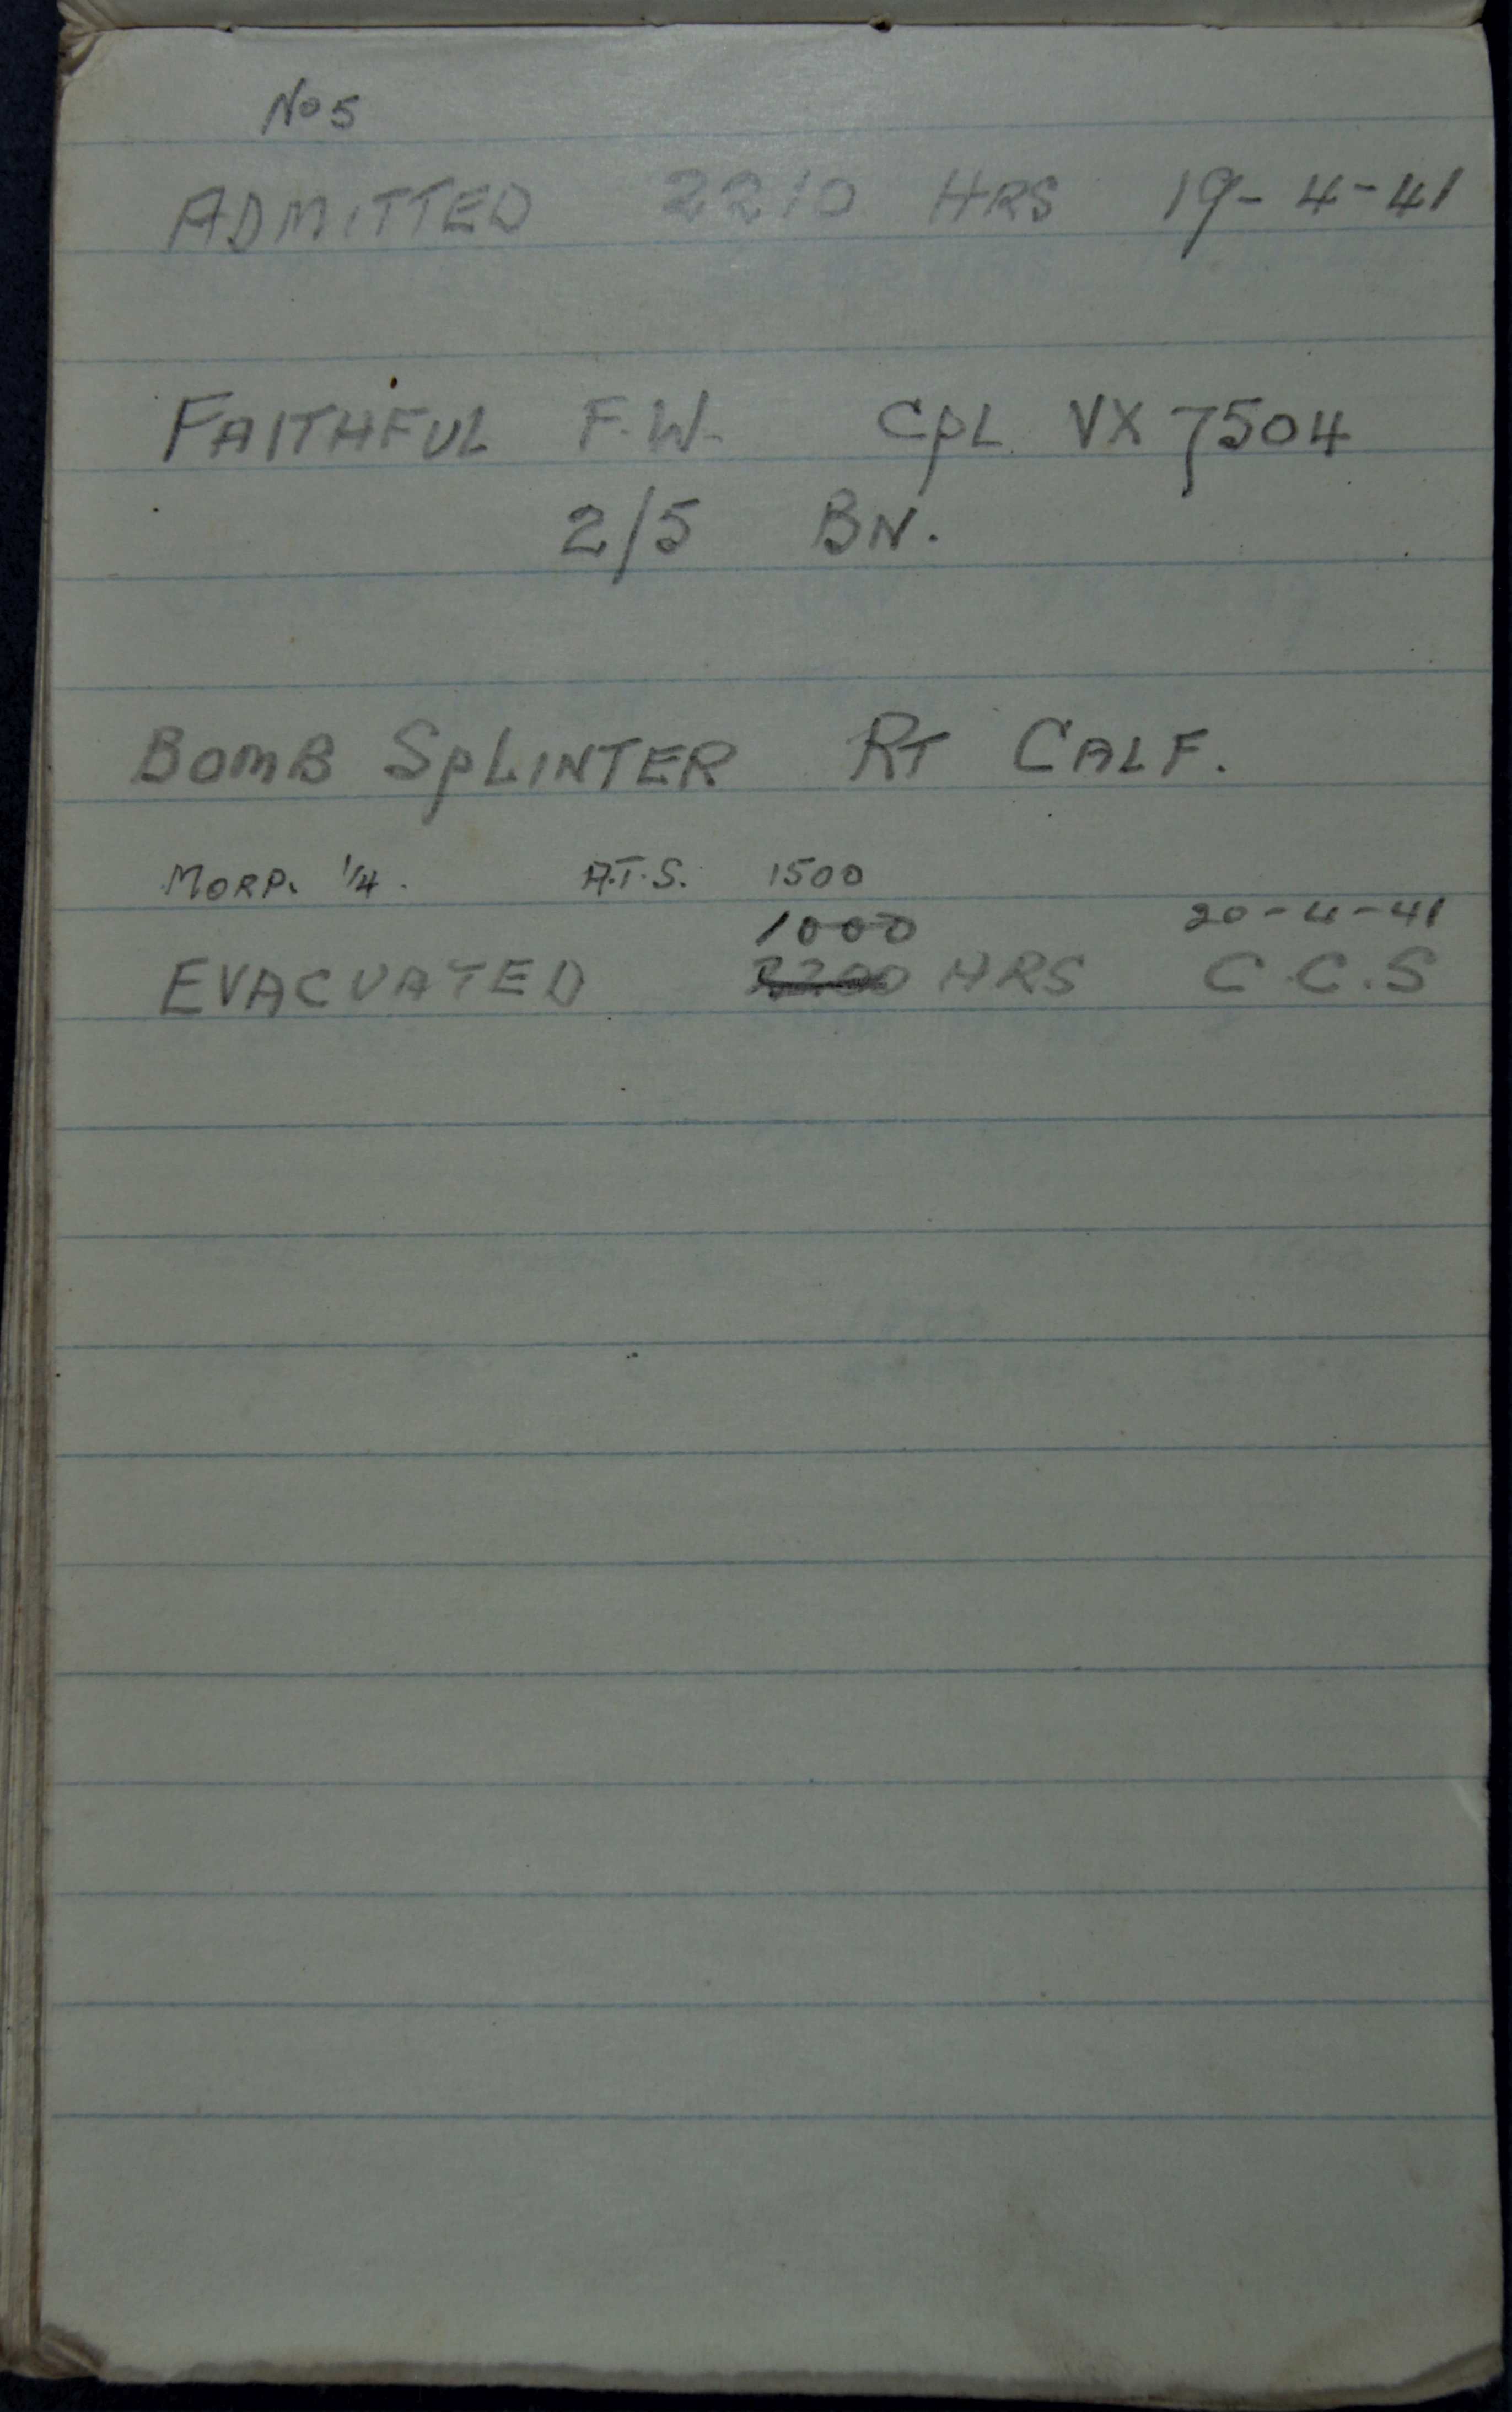 No 5
ADMITTED 2210 HRS 19-4-41
FAITHFUL F.W. CpL VX 7504
2/5 BN.
BOMB SpLINTER RT CALF.
MORP. 1/4. A.T.S. 1500
1000 20-4-41
EVACUATED 2200 HRS C.C.S